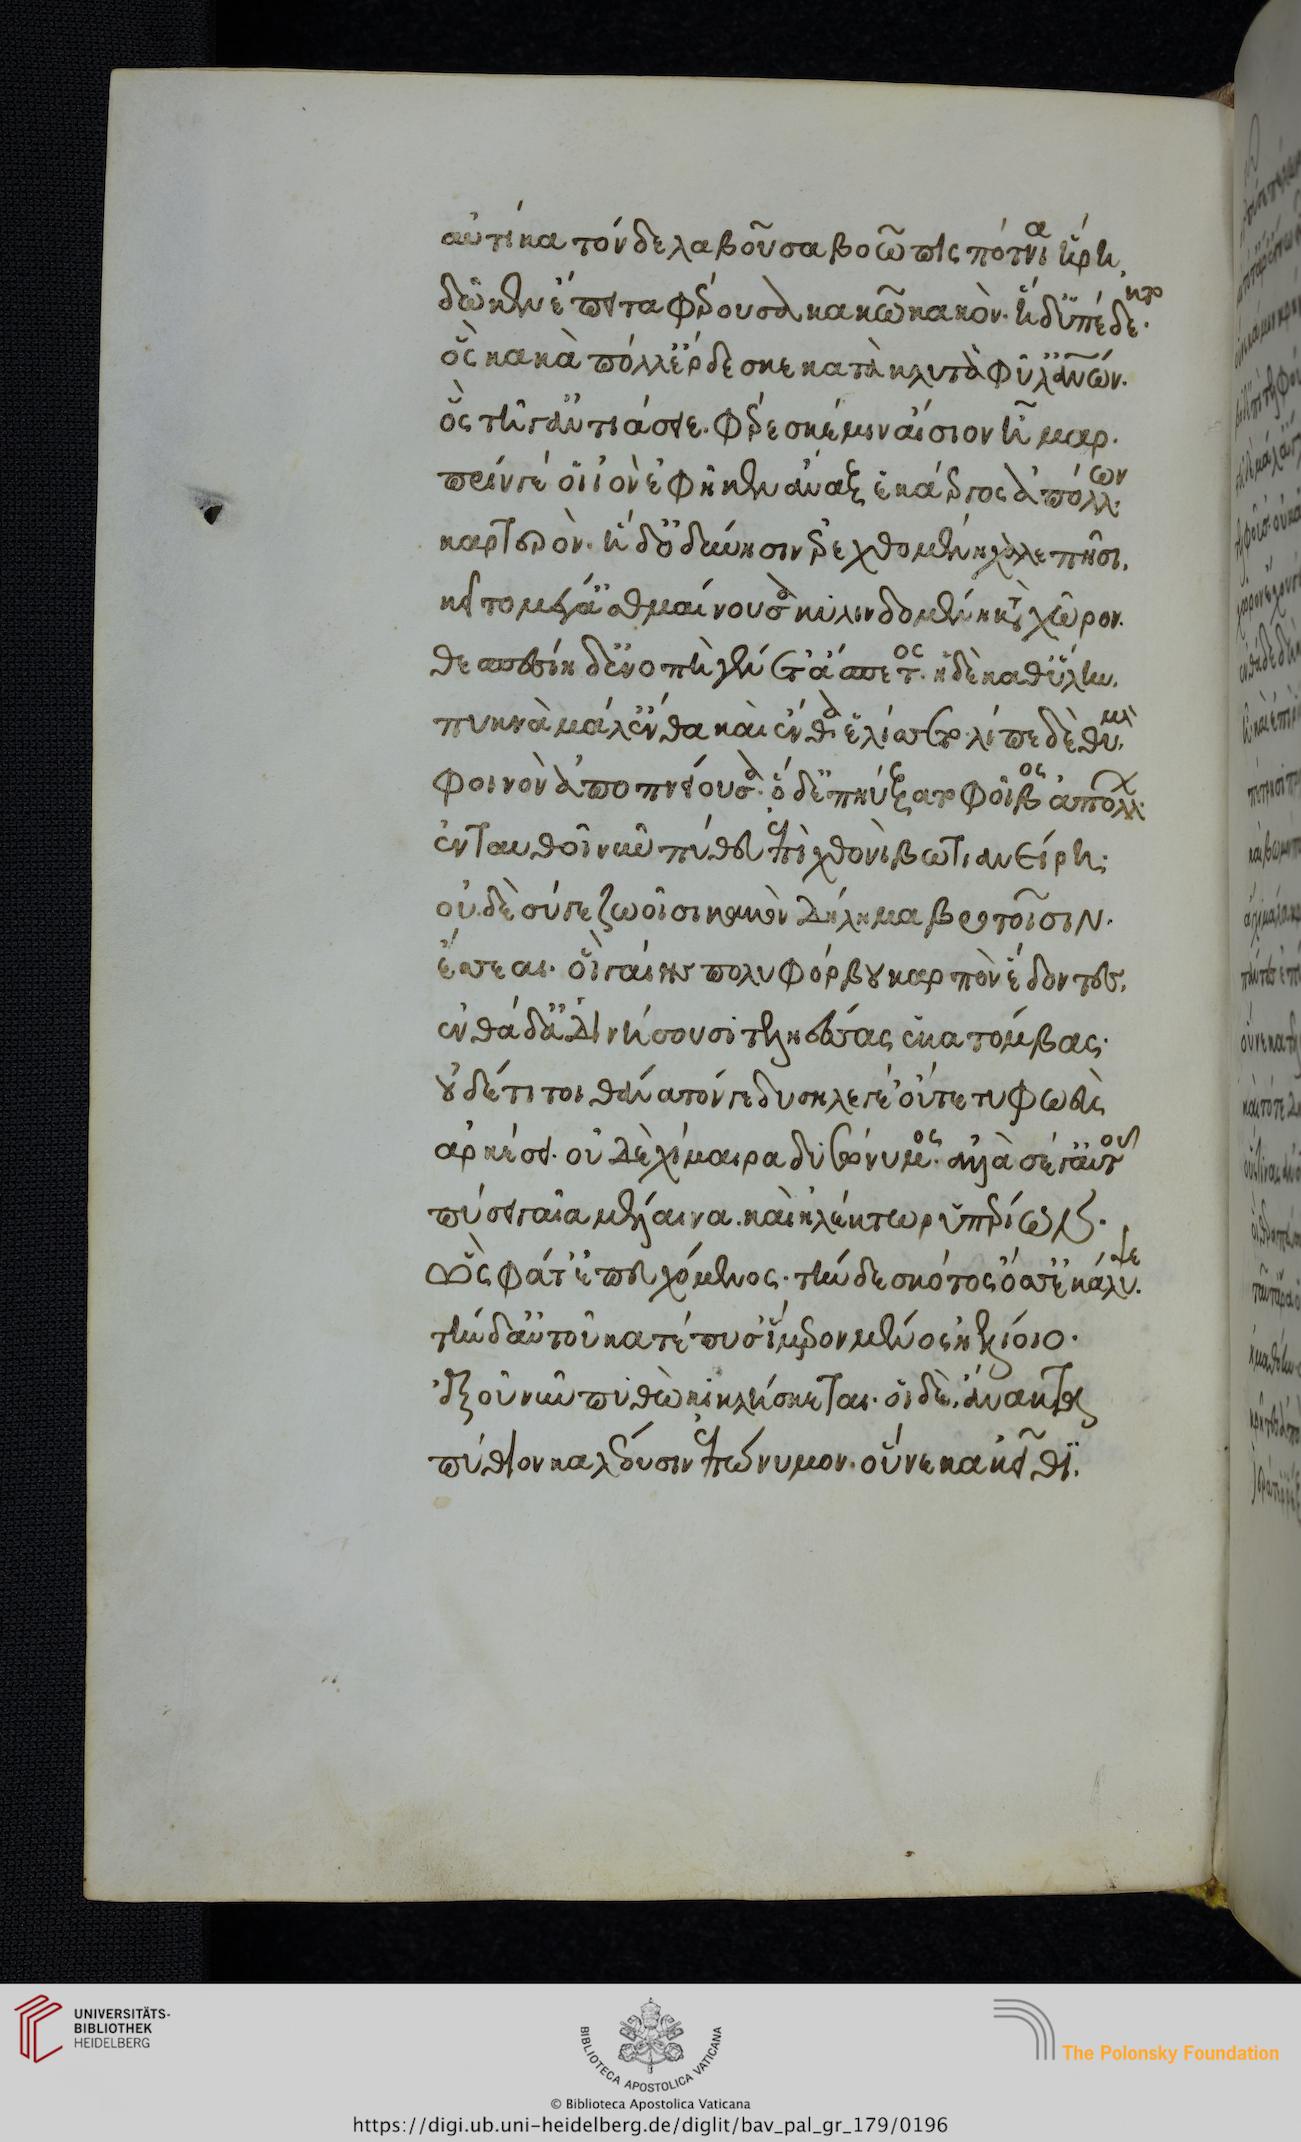 αὐτίκα τόνδε λαβοῦσα βοῶπις πότνια ἥρη,
δῶκεν ἔπειτα φέρουσα κακῶ κακόν. ἡ δ' ὑπέδεκτο.
ὃς κακὰ πόλλ' ἔρδεσκε κατὰ κλυτὰ φῦλ' ἀνθρώπων.
ὃς τῆγ' ἀντιάσειε. φέρεσκέ μιν αἴσιον ἦμαρ.
πρίν γέ οἱ ἰὸν ἐφῆκεν ἄναξ ἑκάεργος ἀπόλλων
καρτερόν. ἡ δ' ὀδύνησιν ἐρεχθομένη χαλεπῆσι,
κεῖτο μέγα ἀσθμαίνουσα κυλινδομένη κατὰ χῶρον.
θεσπεσίη δ' ἐνοπὴ γένετ' ἄσπετος. ἡ δὲ καθ' ὕλην,
πυκνὰ μάλ' ἔνθα καὶ ἔνθα ἑλίσσετο. λίπε δὲ θυμὸν
φοινὸν ἀποπνείουσα. ὁ δ' ἐπηύξατο φοῖβος ἀπόλλων
ἐνταυθοῖ νῦν πύθευ ἐπὶ χθονὶ βωτιανείρη;
οὐδὲ σύγε ζωοῖσι κακὸν δήλημα βροτοῖσιν.
ἔσσεαι. οἳ γαίης πολυφόρβου καρπὸν ἔδοντες,
ἐνθάδ' ἀγινήσουσι τεληέσσας ἑκατόμβας.
οὐδέ τί τοι θάνατόν γε δυσηλεγέ' οὔτε τυφωεὺς
ἀρκέσει. οὐδὲ χίμαιρα δυσώνυμος. ἀλλὰ σέ γ' αὐτοῦ
πύσει γαῖα μέλαινα. καὶ ἠλέκτωρ ὑπερίων.
ὣς φάτ' ἐπευχόμενος. τὴν δὲ σκότος ὄσσε κάλυψε.
τὴν δ' αὐτοῦ κατέπυσ' ἵμερον μένος ἠελίοιο.
ἐξ οὗ νῦν πυθὼ κικλήσκεται. οἱ δὲ ἄνακτα
πύθιον καλέουσιν ἐπώνυμον. οὕνεκα κεῖθι.
UNIVERSITÄTS-
BIBLIOTHEK
HEIDELBERG
BIBLIOTECA APOSTOLICA VATICANA
© Biblioteca Apostolica Vaticana
https://digi.ub.uni-heidelberg.de/diglit/bav_pal_gr_179/0196
The Polonsky Foundation